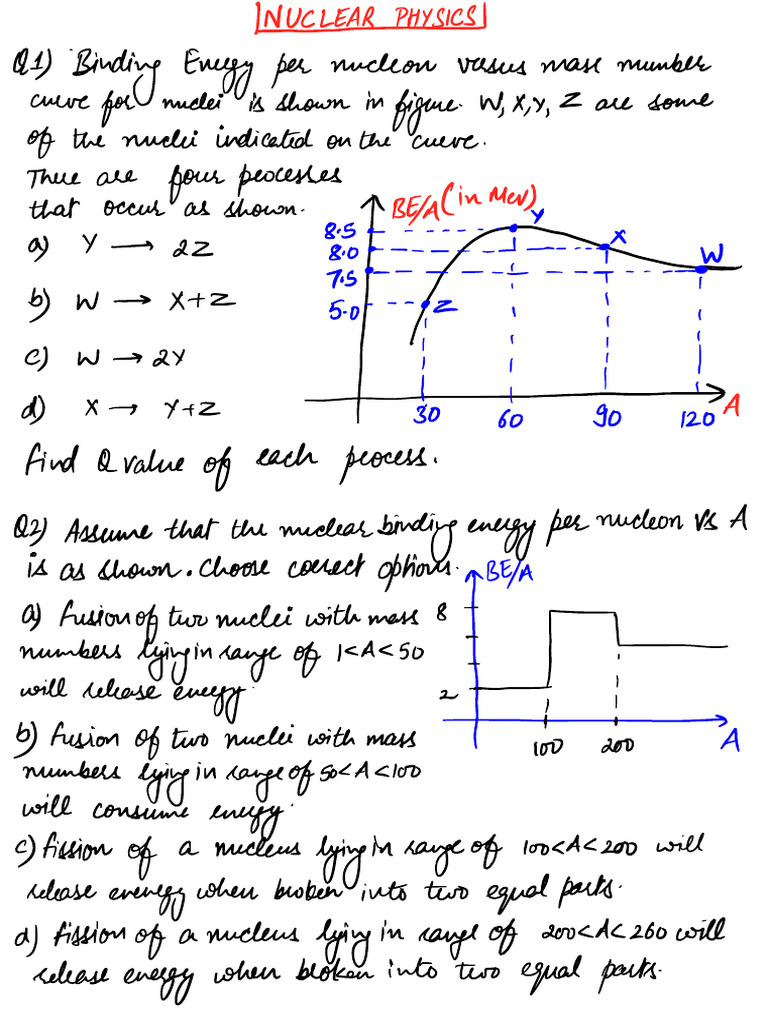 NUCLEAR PHYSICS
Q1) Binding Energy per nucleon versus mass number
curve for nuclei is shown in figure. W, X, Y, Z are some
of the nuclei indicated on the curve.
There are four processes
that occur as shown.
a) Y → 2Z
b) W → X+Z
c) W → 2Y
d) X → Y+Z
BE/A (in MeV)
8.5
8.0
7.5
5.0
Y
X
W
Z
30 60 90 120 A
find Q value of each process.
Q2) Assume that the nuclear binding energy per nucleon vs A
is as shown. Choose correct options.
a) fusion of two nuclei with mass
numbers lying in range of 1<A<50
will release energy.
b) fusion of two nuclei with mass
numbers lying in range of 50<A<100
will consume energy.
BE/A
8
2
100 200 A
c) fission of a nucleus lying in range of 100<A<200 will
release enenegy when broken into two equal parts.
d) fission of a nucleus lying in range of 200<A<260 will
release energy when broken into two equal parts.